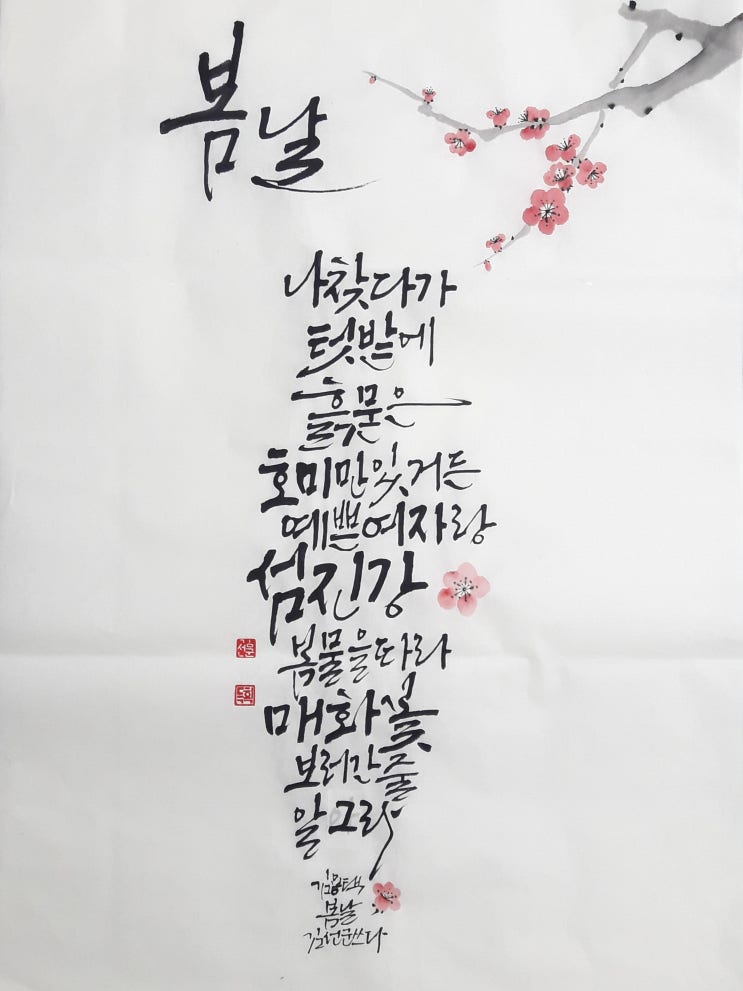 봄날
나 찾다가
텃밭에
흙 묻은
호미만 있거든
예쁜 여자랑
섬진강
봄물을 따라
매화꽃
보러 간 줄
알그라
김용택
봄날
쓰다